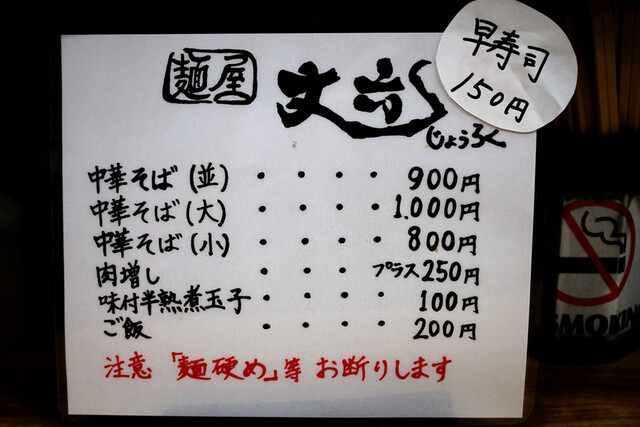 早寿司
150円
麺屋 丈六
じょうろく
中華そば(並)・・・・900円
中華そば(大)・・・・1.000円
中華そば(小)・・・・800円
肉増し・・・・プラス250円
味付半熟煮玉子・・・・100円
ご飯・・・・200円
注意「麺硬め」等 お断りします
SMOKIN